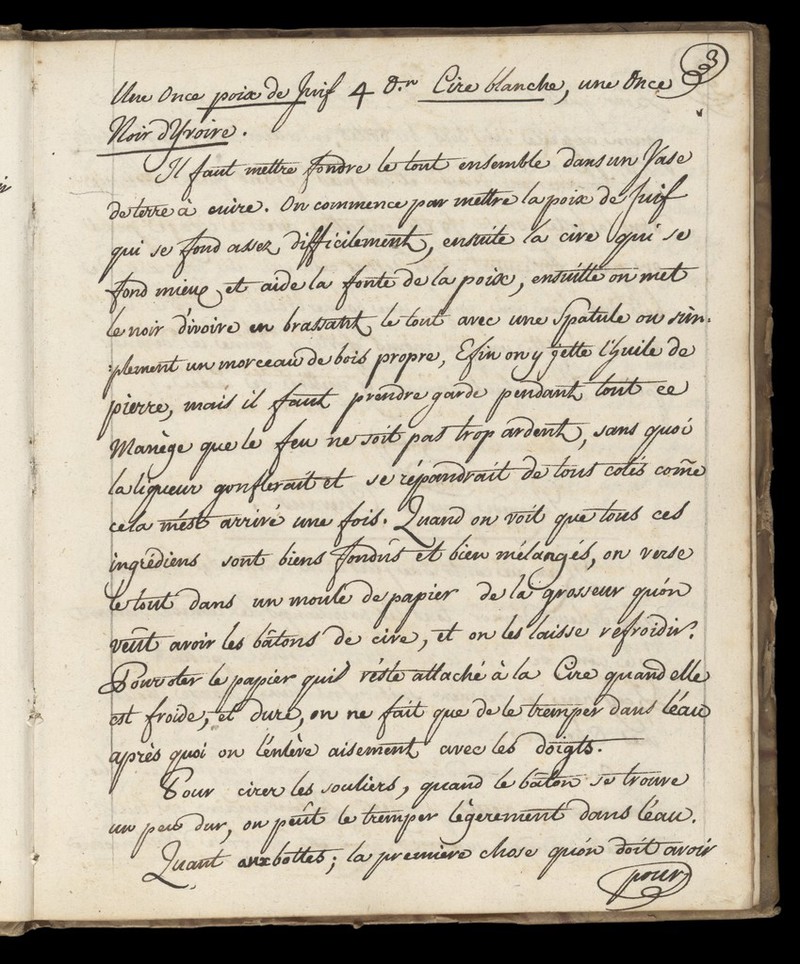 3
Une Once poix de Juif 4 d.rs Cire blanche, une Once
Noir d'Yvoire.
Il faut mettre fondre le tout ensemble dans un Vase
de terre à cuire. On commence par mettre la poix de Juif
qui se fond assez difficilement, ensuite la cire qui se
fond mieux et aide la fonte de la poix, ensuitte on met
le noir d'ivoire en brassant le tout avec une Spatule ou sim-
:plement un morceau de bois propre, Efin on y jette l'huile de
pierre, mais il faut prendre garde pendant tout ce
Manège que le feu ne soit pas trop ardent, sans quoi
la liqueur gonflerait et se répandrait de tous cotés com̃e
cela m'est arrivé une fois. Quand on voit que tous ces
ingrédiens sont biens fondus et bien mélangés, on verse
le tout dans un moule de papier de la grosseur qu'on
veut avoir les bâtons de cire, et on les laisse refroidir.
Pour oter le papier quil réste attaché à la Cire quand elle
est froide, et dure, on ne fait que de le tremper dans l'eau
après quoi on l'enlève aisement avec les doigts.
Pour cirer les souliers, quand le bâton se trouve
un peu dur, on peût le tremper lègerement dans l'éau.
Quant aux bottes; la première chose qu'on doit avoir
pour